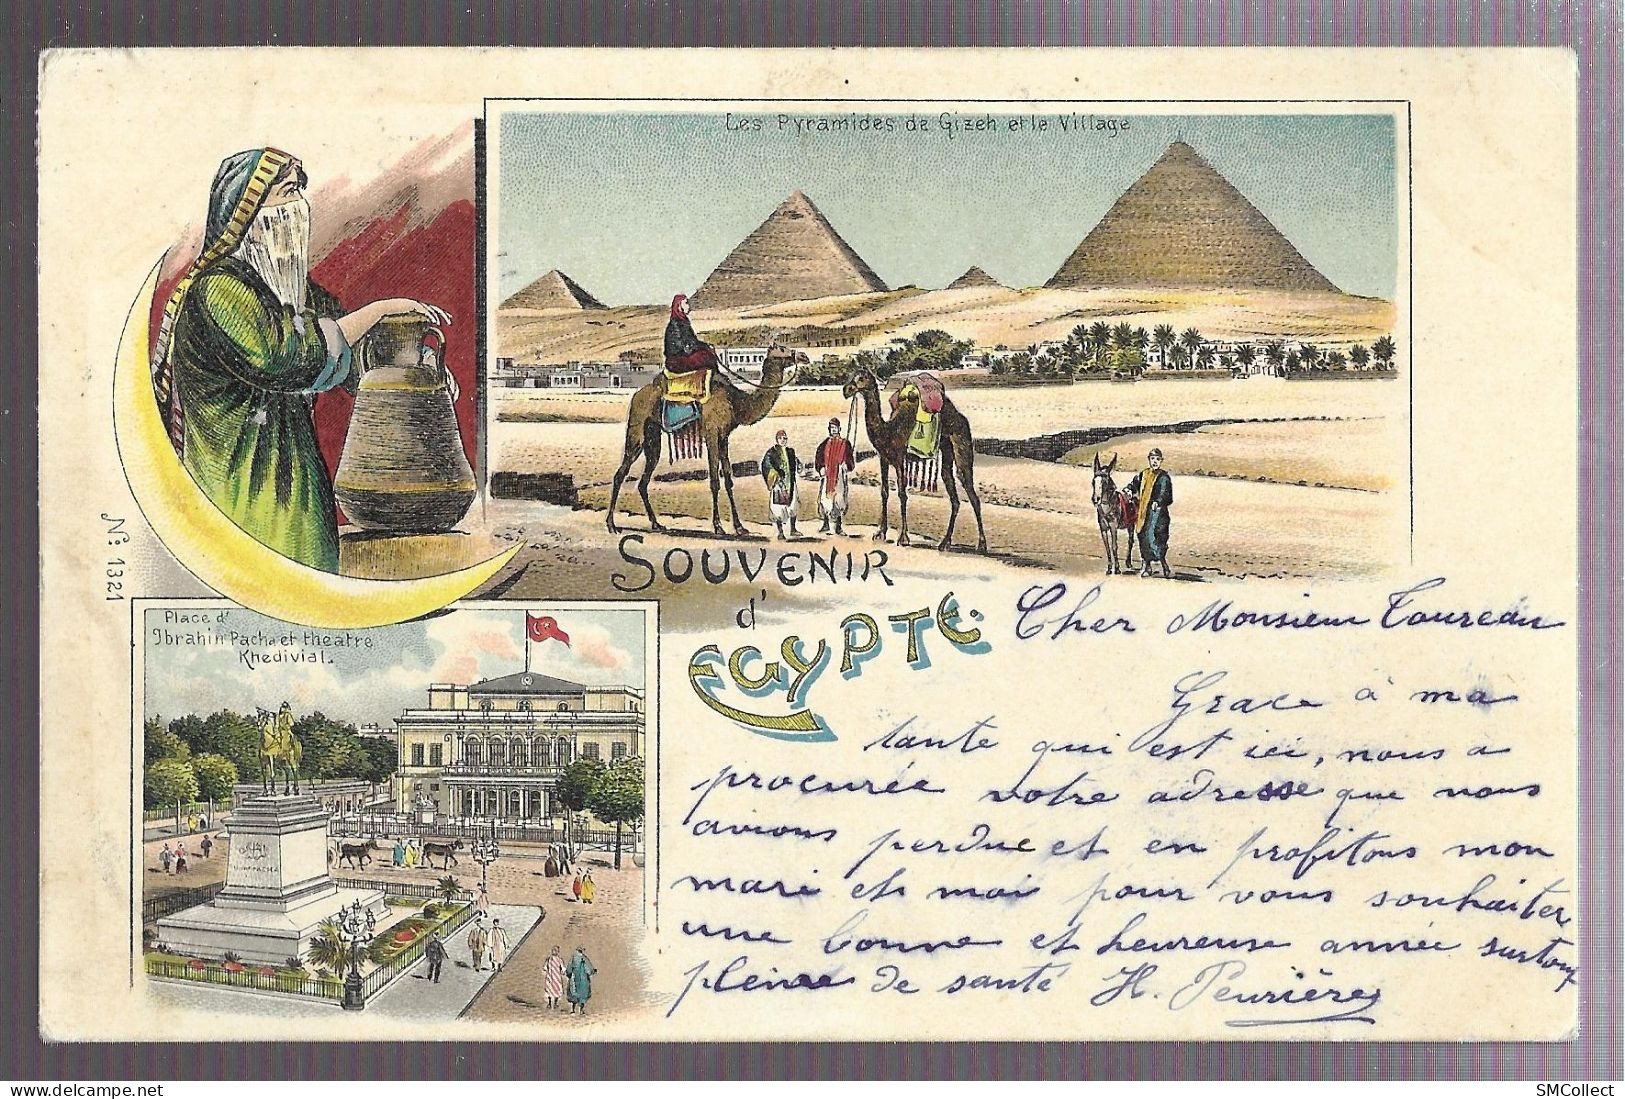 Les Pyramides de Gizeh et le Village
Nº 1321
SOUVENIR
d'
EGYPTE.
Place d'
Ibrahin Pacha et theatre
Khedivial.
Cher Monsieur Toureau
Grace à ma
tante qui est ici, nous a
procurée votre adresse que nous
avions perdue et en profitons mon
mari et moi pour vous souhaiter
une bonne et heureuse année surtout
pleine de santé H. Peurières
SMCollect